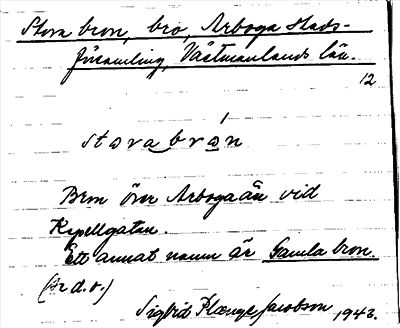 Stora bron, bro, Arboga stads-
församling, Västmanlands län.
12
stora brón
Bron över Arbogaån vid
Kapellgatan.
Ett annat namn är Gamla bron.
(se d. o.)
Sigfrid Jacobson 1943.